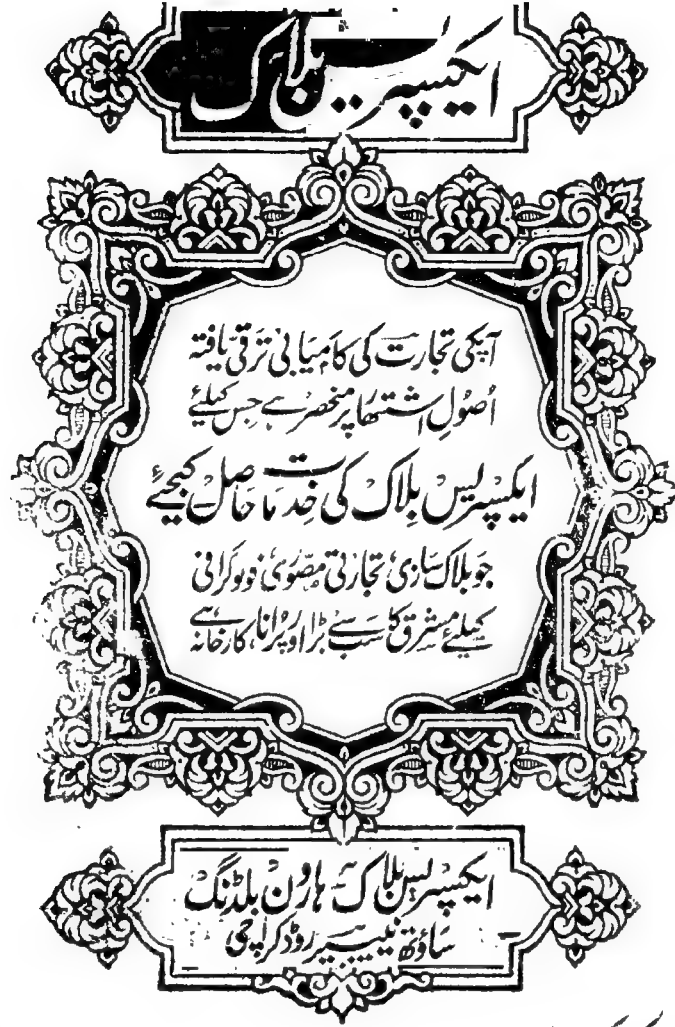 ایکسپریس بلاک
آپکی تجارت کی کامیابی ترقی یافتہ
اُصُولِ اشتھار پر منحصر ہے جس کیلئے
ایکسپریس بلاک کی خدمات حاصل کیجئے
جو بلاک سازی تجارتی مصوّری فوٹوگرافی
کیلئے مشرق کا سب سے بڑا اور پُرانا کارخانہ ہے
ایکسپریس بلاک ہارون بلڈنگ
ساؤتھ نیپیر روڈ کراچی